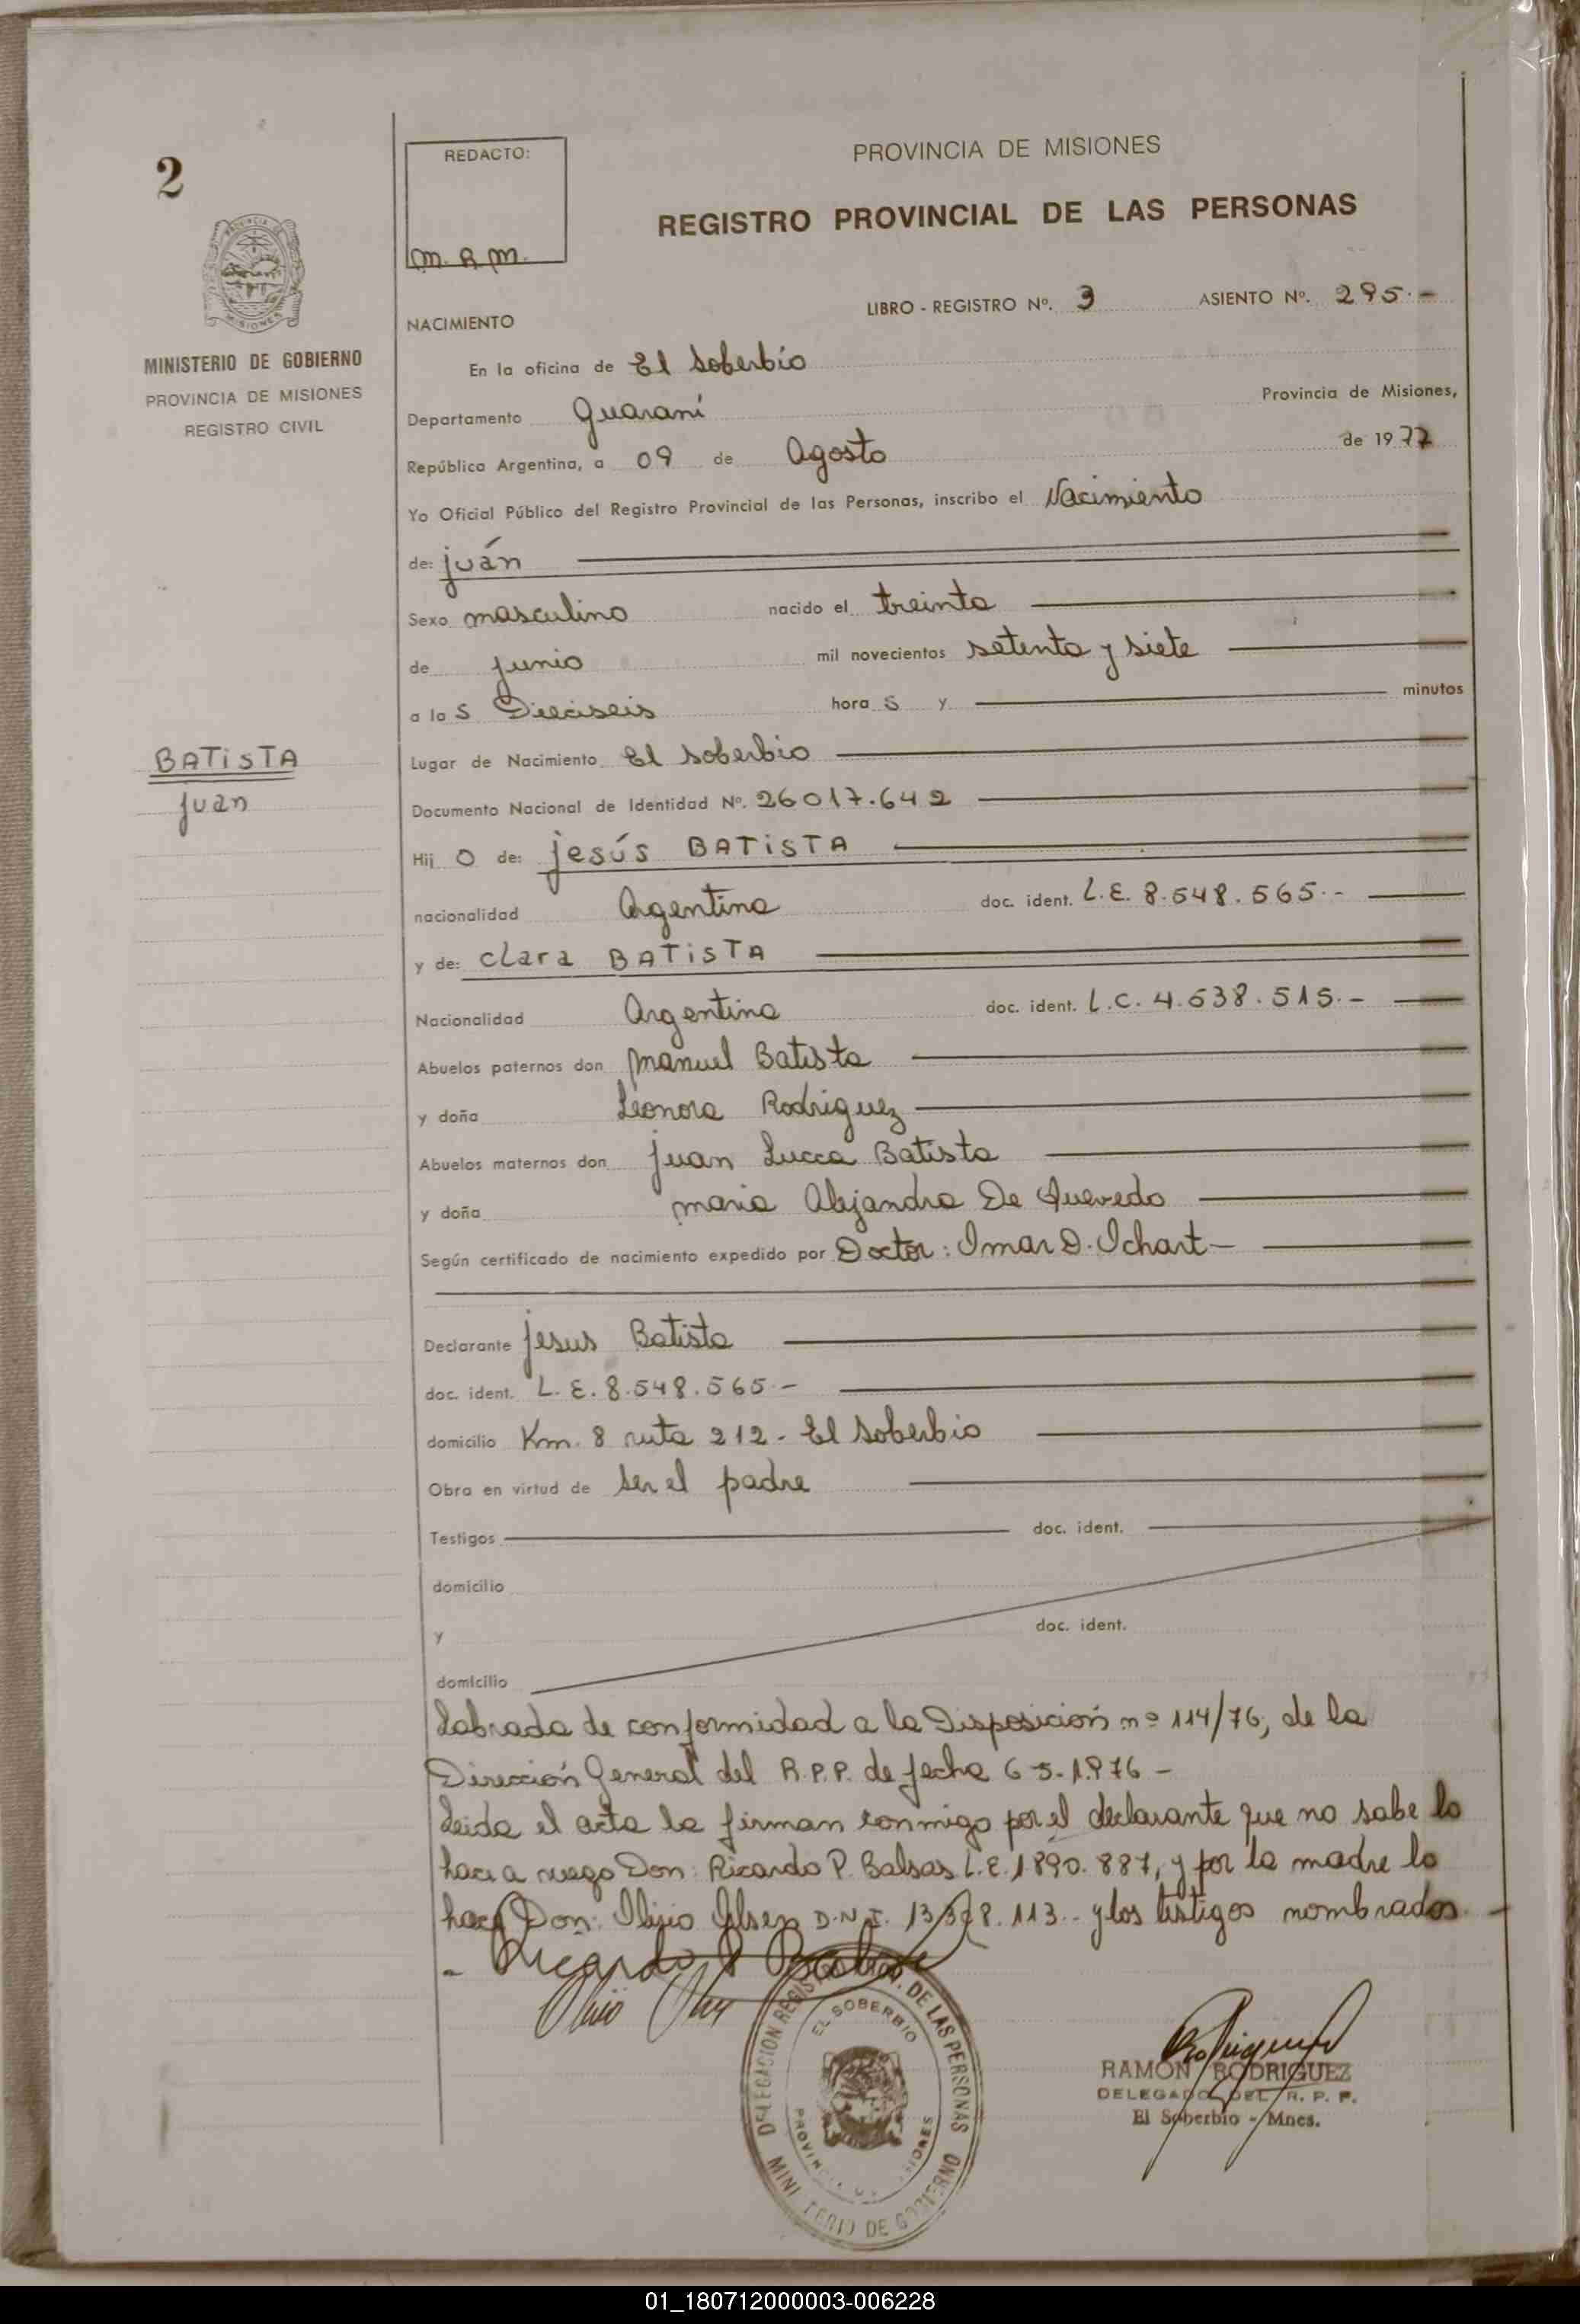 2
PROVINCIA DE
MISIONES
MINISTERIO DE GOBIERNO
PROVINCIA DE MISIONES
REGISTRO CIVIL
BATiSTA
juan
REDACTO:
m. R m.
PROVINCIA DE MISIONES
REGISTRO PROVINCIAL DE LAS PERSONAS
LIBRO - REGISTRO Nº. 3 ASIENTO Nº. 295.-
NACIMIENTO
En la oficina de El Soberbio
Departamento Guaraní Provincia de Misiones,
República Argentina, a 09 de Agosto de 1977
Yo Oficial Público del Registro Provincial de las Personas, inscribo el Nacimiento
de: juán
Sexo masculino nacido el treinta
de junio mil novecientos setenta y siete
a la s Dieciseis hora s y minutos
Lugar de Nacimiento El Soberbio
Documento Nacional de Identidad Nº. 26017.642
Hij o de: jesús BATiSTA
nacionalidad Argentina doc. ident. L.E. 8.548.565.-
y de: clara BATiSTA
Nacionalidad Argentina doc. ident. L.C. 4.538.515.-
Abuelos paternos don Manuel Batista
y doña Leonora Rodriguez
Abuelos maternos don juan Lucca Batista
y doña maria Alejandra De Quevedo
Según certificado de nacimiento expedido por Doctor: Omar D. Ichart-
Declarante jesus Batista
doc. ident. L.E. 8.548.565-
domicilio Km. 8 ruta 212 - El Soberbio
Obra en virtud de ser el padre
Testigos doc. ident.
domicilio
y doc. ident.
domicilio
Labrada de conformidad a la Disposición nº 114/76, de la
Dirección General del R.P.P. de fecha 6-5-1.976-
Leida el acta la firman conmigo por el declarante que no sabe lo
hace a ruego Don: Ricardo P. Balsas L.E. 1.890.887, y por la madre lo
hace Don: D.N.I. y los testigos nombrados.-
Ricardo P
DELEGACION REGIS DE LAS PERSONAS
EL SOBERBIO
MINI TERIO DE GOBIERNO
RAMON RODRIGUEZ
DELEGADO DEL R. P. P.
El Soberbio - Mnes.
01_180712000003-006228